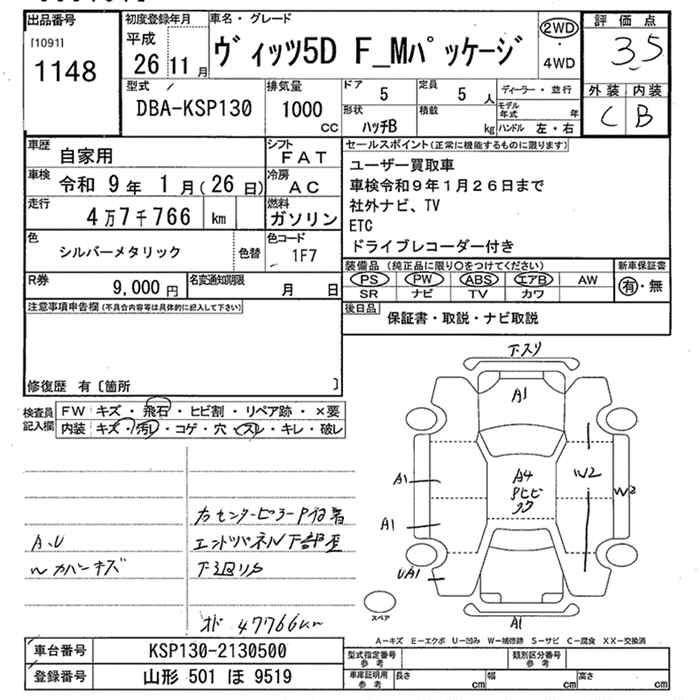 出品番号
[1091]
1148
初度登録年月
平成
26 11 月
車名・グレード
ヴィッツ5D F_Mパッケージ
2WD
・
4WD
評価点
3.5
外装 内装
C B
型式
DBA-KSP130
排気量
1000
cc
ドア 5
定員 5 人
形状 ハッチB
積載 kg
ディーラー・並行
モデル年式 年
ハンドル 左・右
車歴 自家用
車検 令和 9年 1月(26日)
走行 4万7千766 km
色 シルバーメタリック 色替
シフト FAT
冷房 AC
燃料 ガソリン
色コード 1F7
R券 9,000 円
名変通知期限 月 日
セールスポイント(正常に機能するものに限ります)
ユーザー買取車
車検令和9年1月26日まで
社外ナビ、TV
ETC
ドライブレコーダー付き
装備品 (純正品に限り○をつけてください)
PS PW ABS エアB AW
SR ナビ TV カワ
新車保証書
有・無
後日品 保証書・取説・ナビ取説
注意事項申告欄(不具合内容等は具体的に記入して下さい)
修復歴 有〔箇所 〕
検査員記入欄
FW キズ・飛石・ヒビ割・リペア跡・×要
内装 キズ・汚れ・コゲ・穴・スレ・キレ・破レ
右センターピラーP付着
A.U エンドパネルN下部歪
Wカバーキズ 下廻りサビ
オド 47766km
下スリ
A1
A4
W2
W2
A1
A1
UA1
A1
スペア
A-キズ E-エクボ U-凹み W-補修跡 S-サビ C-腐食 XX-交換済
車台番号 KSP130-2130500
登録番号 山形 501 ほ 9519
型式指定番号 参考
類別区分番号 参考
車庫証明用 参考 長さ cm 幅 cm 高さ cm